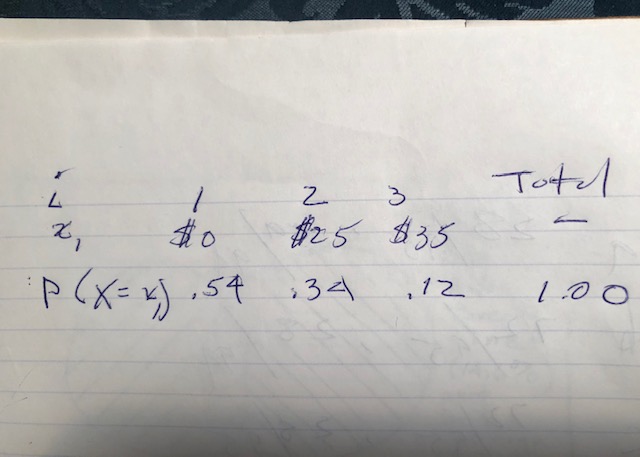 i 1 2 3 Total
xᵢ $0 $25 $35 –
P(X=xᵢ) .54 .34 .12 1.00